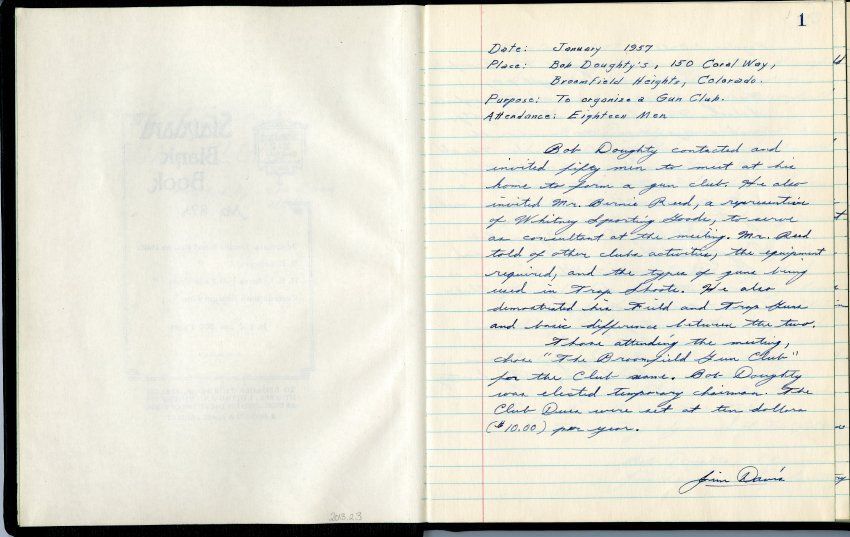 1
Date: January 1957
Place: Bob Doughty's, 150 Coral Way,
Broomfield Heights, Colorado.
Purpose: To organize a Gun Club.
Attendance: Eighteen Men
Bob Doughty contacted and
invited fifty men to meet at his
home to form a gun club. He also
invited Mr. Bernie Reed, a representive
of Whitney Sporting Goods, to serve
as consultant at the meeting. Mr. Reed
told of other clubs activities, the equipment
required, and the types of guns being
used in Trap Shoots. He also
demonstrated his Field and Trap Guns
and basic difference between the two.
Those attending the meeting,
chose "The Broomfield Gun Club"
for the Club name. Bob Doughty
was elected temporary chairman. The
Club Dues were set at ten dollars
($10.00) per year.
Jim Davis
2013.23
Standard
Blank
Book